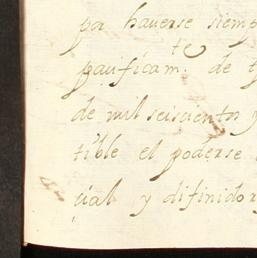 por hauerse siemp
pacificam.te de
de mil seiscientos y
tible el poderse
cial y difinidor